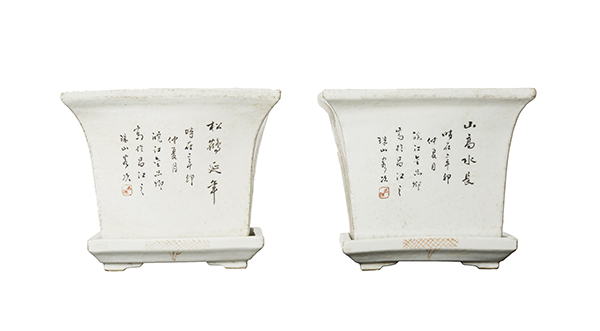 松鶴延年
時在辛卯
仲夏月
江金品卿
寫於昌江之
珠山客次
山高水長
時在辛卯
仲夏月
江金品卿
寫於昌江之
珠山客次